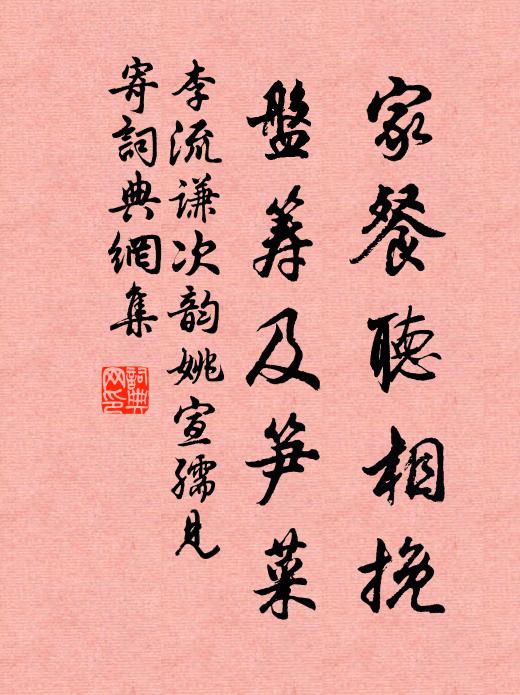 家餐聽相挽
盤筭及笋菜
李流謙次韵姚宣孺見
寄詞典網集
詞典網印